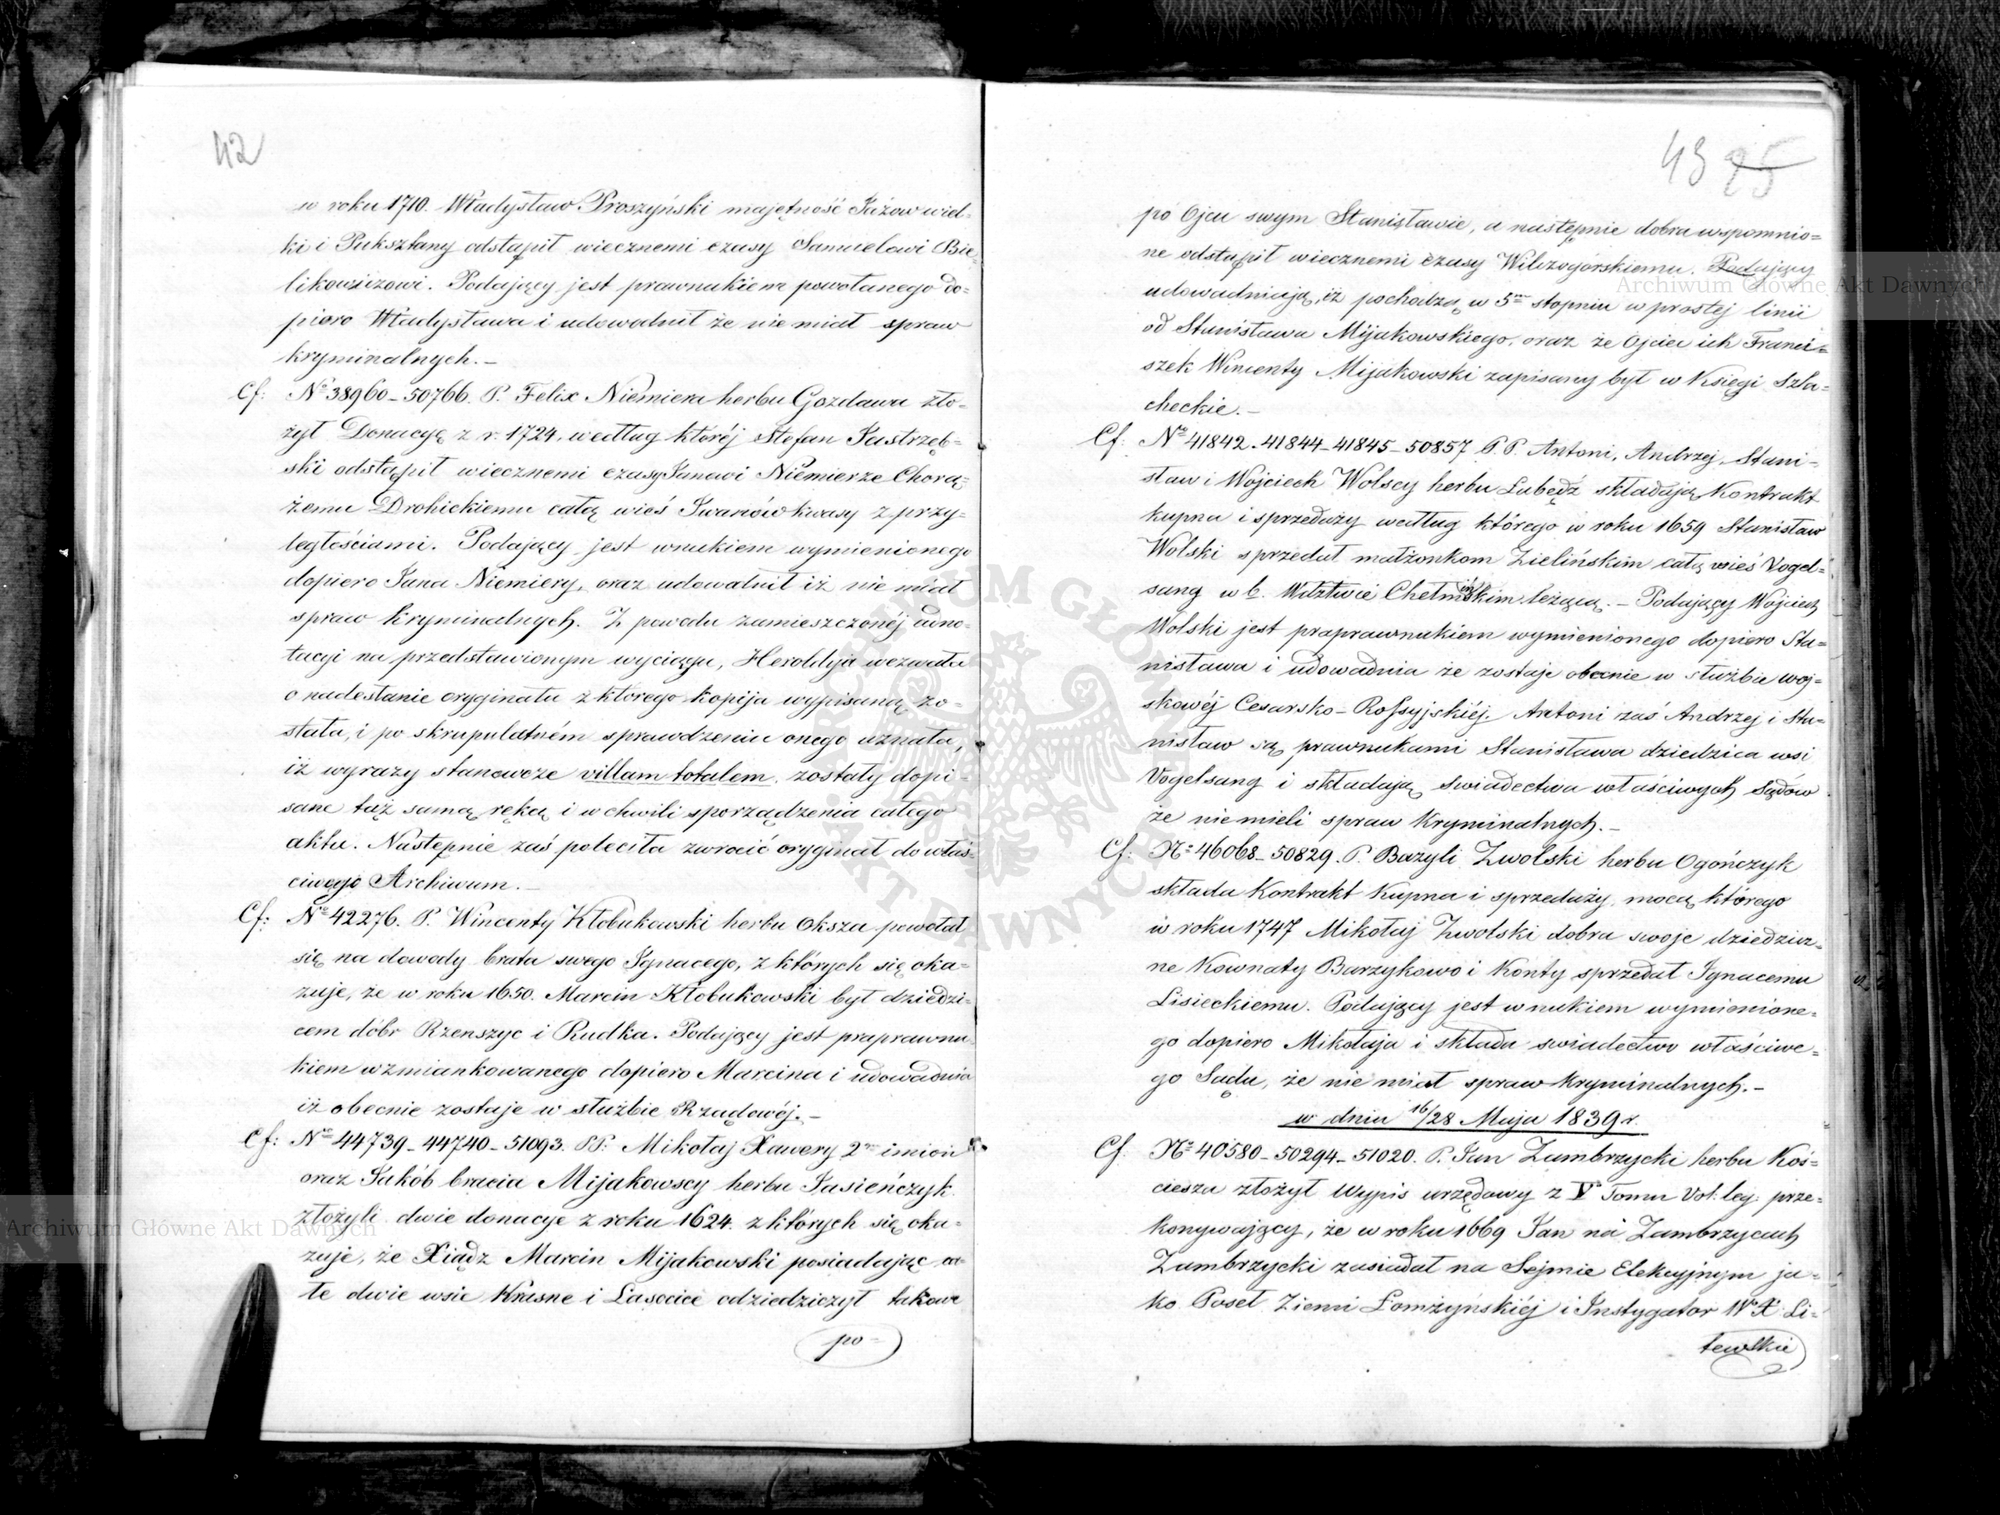 42
w roku 1710. Władysław Proszyński majętność Jażow wiel-
ki i Pukszłany odstąpił wiecznemi czasy Samuelowi Bie-
likowiczowi. Podający jest prawnukiem powołanego do-
piero Władysława i udowodnił że nie miał spraw
kryminalnych.—
Cf: No 38960–50766. P. Felix Niemiera herbu Gozdawa zło-
żył Donacyę z r. 1724. według któréj Stefan Jastrzęb-
ski odstąpił wiecznemi czasy Janowi Niemierze Chorą-
żemu Drohickiemu całą wieś Iwanówkwasy z przy-
ległościami. Podający jest wnukiem wymienionego
dopiero Jana Niemiery, oraz udowodnił iż nie miał
spraw kryminalnych. Z powodu zamieszczonéj adno-
tacyi na przedstawionym wyciągu, Heroldyja wezwała
o nadesłanie oryginału z którego kopija wypisaną zo-
stała, i po skrupulatném sprawdzeniu onego uznała,
iż wyrazy stanowcze villam totalem, zostały dopi-
sane tąż samą ręką i w chwili sporządzenia całego
aktu. Następnie zaś poleciła zwrócić oryginał do właś-
ciwego Archiwum.—
Cf: No 42276. P. Wincenty Kłobukowski herbu Oksza powołał
się na dowody brata swego Ignacego, z których się oka-
zuje, że w roku 1650. Marcin Kłobukowski był dziedzi-
cem dóbr Rzenszyc i Rudka. Podający jest praprawnu-
kiem wzmiankowanego dopiero Marcina i udowadnia
iż obecnie zostaje w służbie Rządowéj.—
Cf: No 44739–44740–51093. PP. Mikołaj Xawery 2ch imion
oraz Jakób bracia Mijakowscy herbu Jasieńczyk
złożyli dwie donacye z roku 1624. z których się oka-
zuje, że Xiądz Marcin Mijakowski posiadając ca-
łe dwie wsie Krasne i Lasocice odziedziczył takowe
po-
43 25
po Ojcu swym Stanisławie, a następnie dobra wspomnio-
ne odstąpił wiecznemi czasy Wilczogórskiemu. Podający
udowadniają, iż pochodzą w 5m stopniu w prostej linii
od Stanisława Mijakowskiego, oraz że Ojciec ich Franci-
szek Wincenty Mijakowski zapisany był w Księgi Szla-
checkie.—
Cf: No 41842–41844–41845–50857 P.P. Antoni, Andrzej, Stani-
sław i Wojciech Wolscy herbu Łabędź składają Kontrakt
kupna i sprzedaży według którego w roku 1659 Stanisław
Wolski sprzedał małżonkom Zielińskim całą wieś Vogel-
sang w b. Wdztwie Chełmińskim leżącą.— Podający Wojciech
Wolski jest praprawnukiem wymienionego dopiero Sta-
nisława i udowadnia że zostaje obecnie w służbie woj-
skowéj Cesarsko-Rossyjskiéj. Antoni zaś Andrzej i Sta-
nisław są prawnukami Stanisława dziedzica wsi
Vogelsang i składają swiadectwa właściwych Sądów
że niemieli spraw kryminalnych.—
Cf: No 46068–50829. P. Bazyli Zwolski herbu Ogończyk
składa Kontrakt Kupna i sprzedaży, mocą którego
w roku 1747 Mikołaj Zwolski dobra swoje dziedzicz-
ne Kownaty Barzykowo i Konty sprzedał Ignacemu
Lisieckiemu. Podający jest wnukiem wymienione-
go dopiero Mikołaja i składa swiadectwo właściwe-
go Sądu, że nie miał spraw kryminalnych.—
w dniu 16/28 Maja 1839 r.
Cf: No 40580–50294–51020. P. Jan Zambrzycki herbu Koś-
ciesza złożył Wypis urzędowy z V Tomu Vol: leg: prze-
konywający, że w roku 1669 Jan na Zambrzycach
Zambrzycki zasiadał na Sejmie Elekcyjnym ja-
ko Poseł Ziemi Łomżyńskiéj i Instygator W. X. Li-
tewskie
Archiwum Główne Akt Dawnych
Archiwum Główne Akt Dawnych
ARCHIWUM GŁÓWNE AKT DAWNYCH